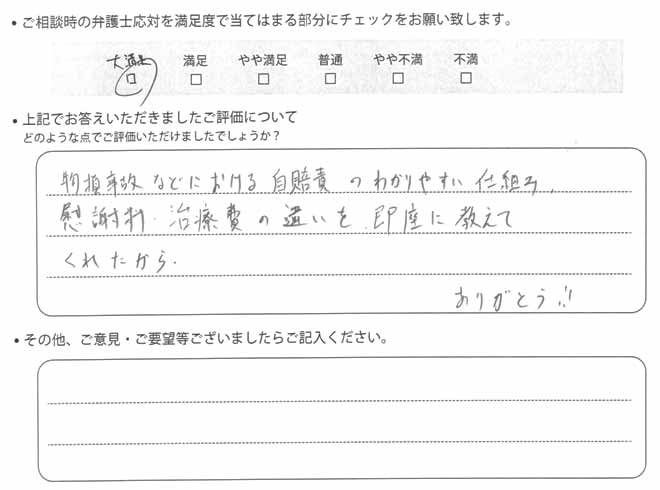 • ご相談時の弁護士応対を満足度で当てはまる部分にチェックをお願い致します。
大満足 満足 やや満足 普通 やや不満 不満
□ □ □ □ □ □
• 上記でお答えいただきましたご評価について
どのような点でご評価いただけましたでしょうか？
物損事故などにおける自賠責のわかりやすい仕組み、
慰謝料・治療費の違いを、即座に教えて
くれたから.
ありがとう!!
• その他、ご意見・ご要望等ございましたらご記入ください。